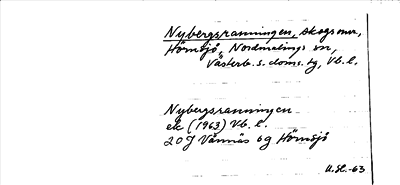 Nybergsranningen, skogsomr,
Hörnsjö, Nordmalings sn,
Västerb. s. doms. tg, Vb. l.
Nybergsranningen
ek (1963) Vb. l.
20J Vännäs og Hörnsjö
U.Sl.-63